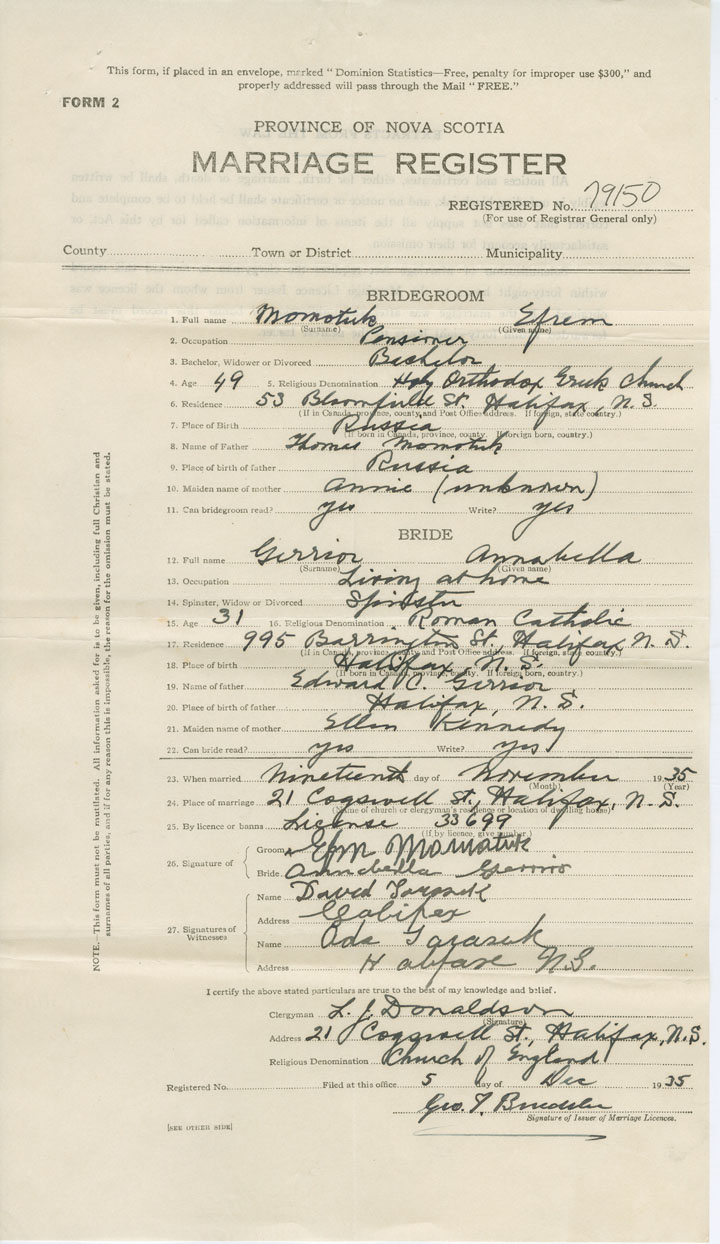 This form, if placed in an envelope, marked "Dominion Statistics—Free, penalty for improper use $300," and
properly addressed will pass through the Mail "FREE."
FORM 2
PROVINCE OF NOVA SCOTIA
MARRIAGE REGISTER
REGISTERED No. 79150
(For use of Registrar General only)
County Town or District Municipality
BRIDEGROOM
1. Full name Momotuk Efrem
(Surname) (Given name)
2. Occupation Pensioner
3. Bachelor, Widower or Divorced Bachelor
4. Age 49 5. Religious Denomination Holy Orthodox Greek Church
6. Residence 53 Bloomfield St. Halifax, N.S.
(If in Canada, province, county and Post Office address. If foreign, state country.)
7. Place of Birth Russia
(If born in Canada, province, county. If foreign born, country.)
8. Name of Father Thomas Momotuk
9. Place of birth of father Russia
10. Maiden name of mother Annie (unknown)
11. Can bridegroom read? yes Write? yes
BRIDE
12. Full name Gerrior Annabella
(Surname) (Given name)
13. Occupation Living at home
14. Spinster, Widow or Divorced Spinster
15. Age 31 16. Religious Denomination Roman Catholic
17. Residence 995 Barrington St., Halifax N.S.
(If in Canada, province, county and Post Office address. If foreign, state country.)
18. Place of birth Halifax, N.S.
(If born in Canada, province, county. If foreign born, country.)
19. Name of father Edward C. Gerrior
20. Place of birth of father Halifax, N.S.
21. Maiden name of mother Ellen Kennedy
22. Can bride read? yes Write? yes
23. When married Nineteenth day of November 1935
(Month) (Year)
24. Place of marriage 21 Cogswell St., Halifax, N.S.
(Name of church or clergyman's residence or location of dwelling house)
25. By licence or banns License 33699
(If by licence, give number.)
26. Signature of
Groom Efm Momatuk
Bride Annabella Gerrior
27. Signatures of Witnesses
Name David Tarasuk
Address Halifax
Name Ada Tarasuk
Address Halifax N.S.
I certify the above stated particulars are true to the best of my knowledge and belief.
Clergyman L. J. Donaldson
(Signature)
Address 21 Cogswell St., Halifax, N.S.
Religious Denomination Church of England
Registered No. Filed at this office 5 day of Dec 1935
Geo. T.
Signature of Issuer of Marriage Licences.
[SEE OTHER SIDE]
NOTE.—This form must not be mutilated. All information asked for is to be given, including full Christian and
surnames of all parties, and if for any reason this is impossible, the reason for the omission must be stated.